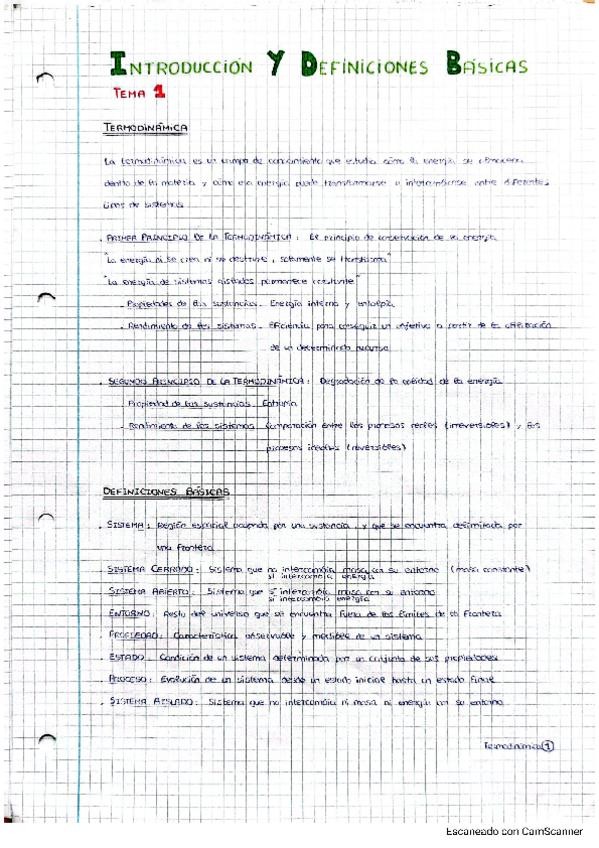 INTRODUCCIÓN Y DEFINICIONES BÁSICAS
TEMA 1
TERMODINÁMICA
La termodinámica es un campo de conocimiento que estudia cómo la energía se almacena
dentro de la materia y cómo esa energía puede transformarse o intercambiarse entre diferentes
tipos de sistemas
. PRIMER PRINCIPIO DE LA TERMODINÁMICA: Es principio de conservación de la energía
"La energía ni se crea ni se destruye, solamente se transforma"
"La energía de sistemas aislados permanece constante"
- Propiedades de las sustancias. Energía interna y entalpía
- Rendimiento de los sistemas. Eficiencia para conseguir un objetivo a partir de la utilización
de un determinado recurso
. SEGUNDO PRINCIPIO DE LA TERMODINÁMICA: Degradación de la calidad de la energía
- Propiedad de las sustancias. Entropía
- Rendimiento de los sistemas. Comparación entre los procesos reales (irreversibles) y los
procesos ideales (reversibles)
DEFINICIONES BÁSICAS
. SISTEMA: Región espacial ocupada por una sustancia, y que se encuentra delimitada por
una frontera
. SISTEMA CERRADO: Sistema que no intercambia masa con su entorno (masa constante)
si intercambia energía
. SISTEMA ABIERTO: Sistema que si intercambia masa con su entorno
si intercambia energía
. ENTORNO: Resto del universo que se encuentra fuera de los límites de la frontera
. PROPIEDAD: Característica observable y medible de un sistema
. ESTADO: Condición de un sistema determinada por un conjunto de sus propiedades
. PROCESO: Evolución de un sistema desde un estado inicial hasta un estado final
. SISTEMA AISLADO: Sistema que no intercambia ni masa ni energía con su entorno
Termodinámica 1
Escaneado con CamScanner